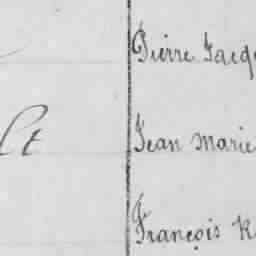 Pierre Jacq
lt
Jean Marie
François K